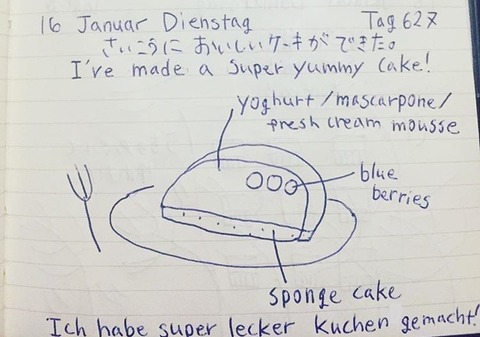 16 Januar Dienstag Tag 627
さいこうに おいしいケーキができた。
I've made a super yummy cake!
yoghurt/mascarpone/
fresh cream mousse
blue
berries
sponge cake
Ich habe super lecker kuchen gemacht!